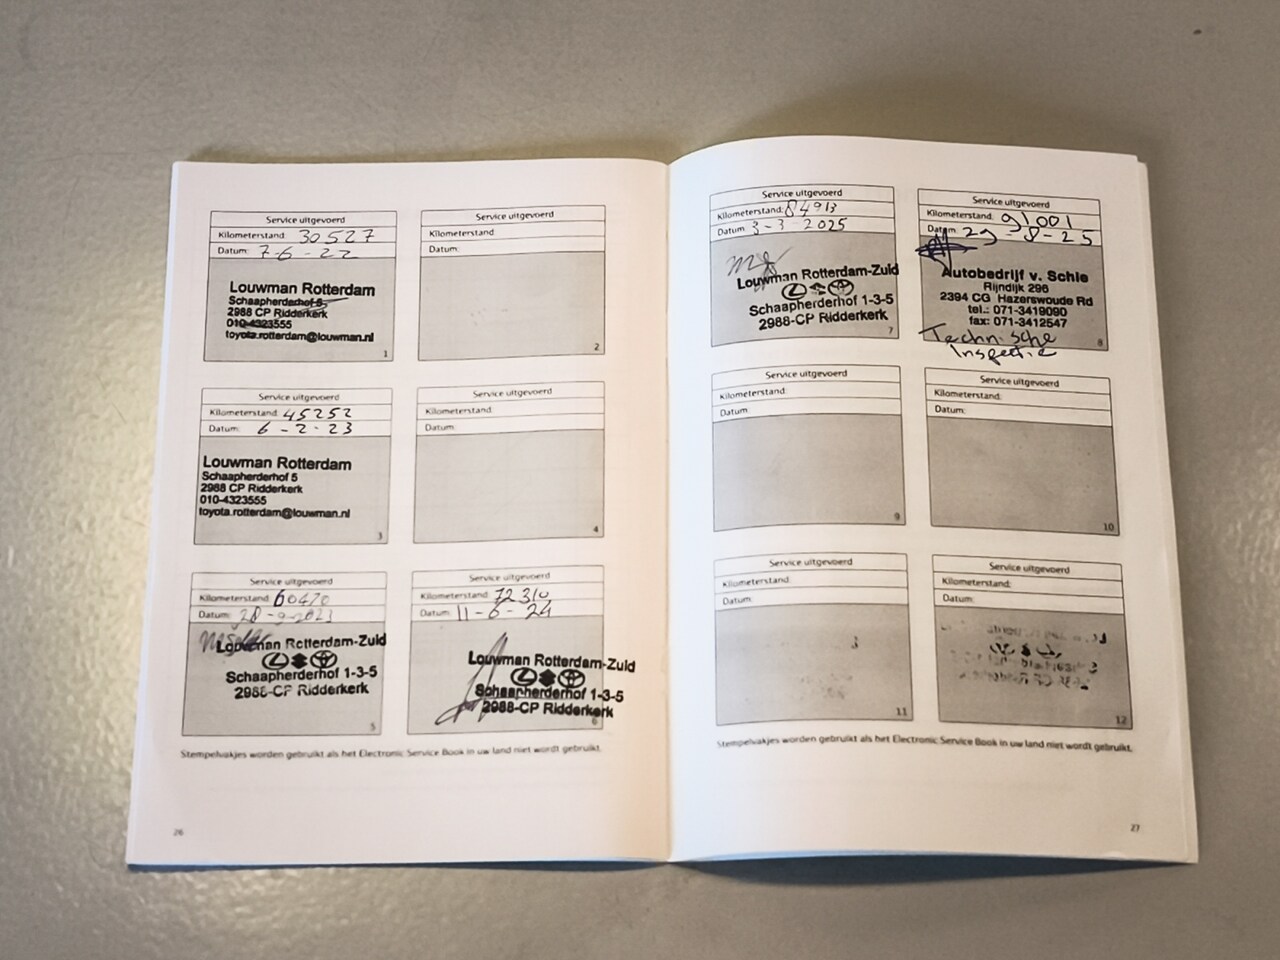 Service uitgevoerd
Kilometerstand: 30527
Datum: 7-6-22
Louwman Rotterdam
Schaapherderhof 5
2988 CP Ridderkerk
010-4323555
toyota.rotterdam@louwman.nl
1
Service uitgevoerd
Kilometerstand:
Datum:
2
Service uitgevoerd
Kilometerstand: 45252
Datum: 6-2-23
Louwman Rotterdam
Schaapherderhof 5
2988 CP Ridderkerk
010-4323555
toyota.rotterdam@louwman.nl
3
Service uitgevoerd
Kilometerstand:
Datum:
4
Service uitgevoerd
Kilometerstand: 60470
Datum: 28-9-2023
Louwman Rotterdam-Zuid
Schaapherderhof 1-3-5
2988-CP Ridderkerk
5
Service uitgevoerd
Kilometerstand: 72310
Datum: 11-6-24
Louwman Rotterdam-Zuid
Schaapherderhof 1-3-5
2988-CP Ridderkerk
6
Stempelvakjes worden gebruikt als het Electronic Service Book in uw land niet wordt gebruikt.
26
Service uitgevoerd
Kilometerstand: 84913
Datum: 3-3-2025
Louwman Rotterdam-Zuid
Schaapherderhof 1-3-5
2988-CP Ridderkerk
7
Service uitgevoerd
Kilometerstand: 91001
Datum: 29-8-25
Autobedrijf v. Schie
Rijndijk 296
2394 CG Hazerswoude Rd
tel.: 071-3419090
fax: 071-3412547
Technische
Inspectie
8
Service uitgevoerd
Kilometerstand:
Datum:
9
Service uitgevoerd
Kilometerstand:
Datum:
10
Service uitgevoerd
Kilometerstand:
Datum:
11
Service uitgevoerd
Kilometerstand:
Datum:
12
Stempelvakjes worden gebruikt als het Electronic Service Book in uw land niet wordt gebruikt.
27